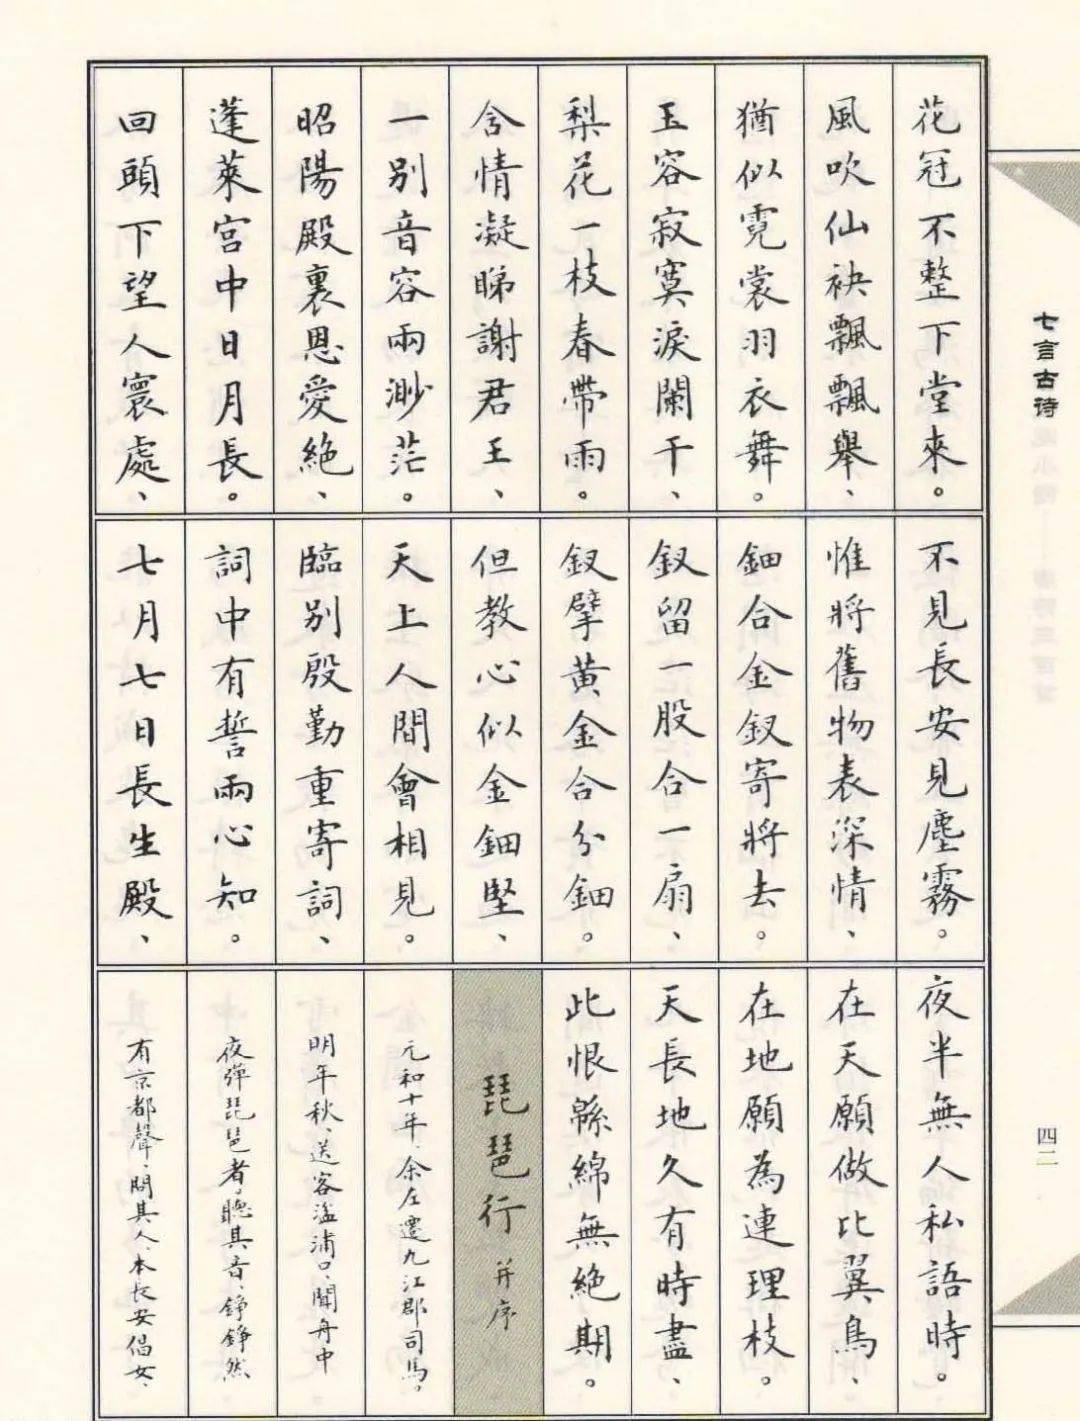 花冠不整下堂來。
風吹仙袂飄飄舉、
猶似霓裳羽衣舞。
玉容寂寞淚闌干、
梨花一枝春帶雨。
含情凝睇謝君王、
一別音容兩渺茫。
昭陽殿裏恩愛絕、
蓬萊宮中日月長。
回頭下望人寰處、
不見長安見塵霧。
惟將舊物表深情、
鈿合金釵寄將去。
釵留一股合一扇、
釵擘黃金合分鈿。
但教心似金鈿堅、
天上人間會相見。
臨別殷勤重寄詞、
詞中有誓兩心知。
七月七日長生殿、
夜半無人私語時。
在天願做比翼鳥、
在地願為連理枝。
天長地久有時盡、
此恨緜綿無絕期。
琵琶行 并序
元和十年、余左遷九江郡司馬。
明年秋、送客湓浦口、聞舟中
夜彈琵琶者、聽其音、錚錚然
有京都聲、問其人、本長安倡女、
七言古诗
四二